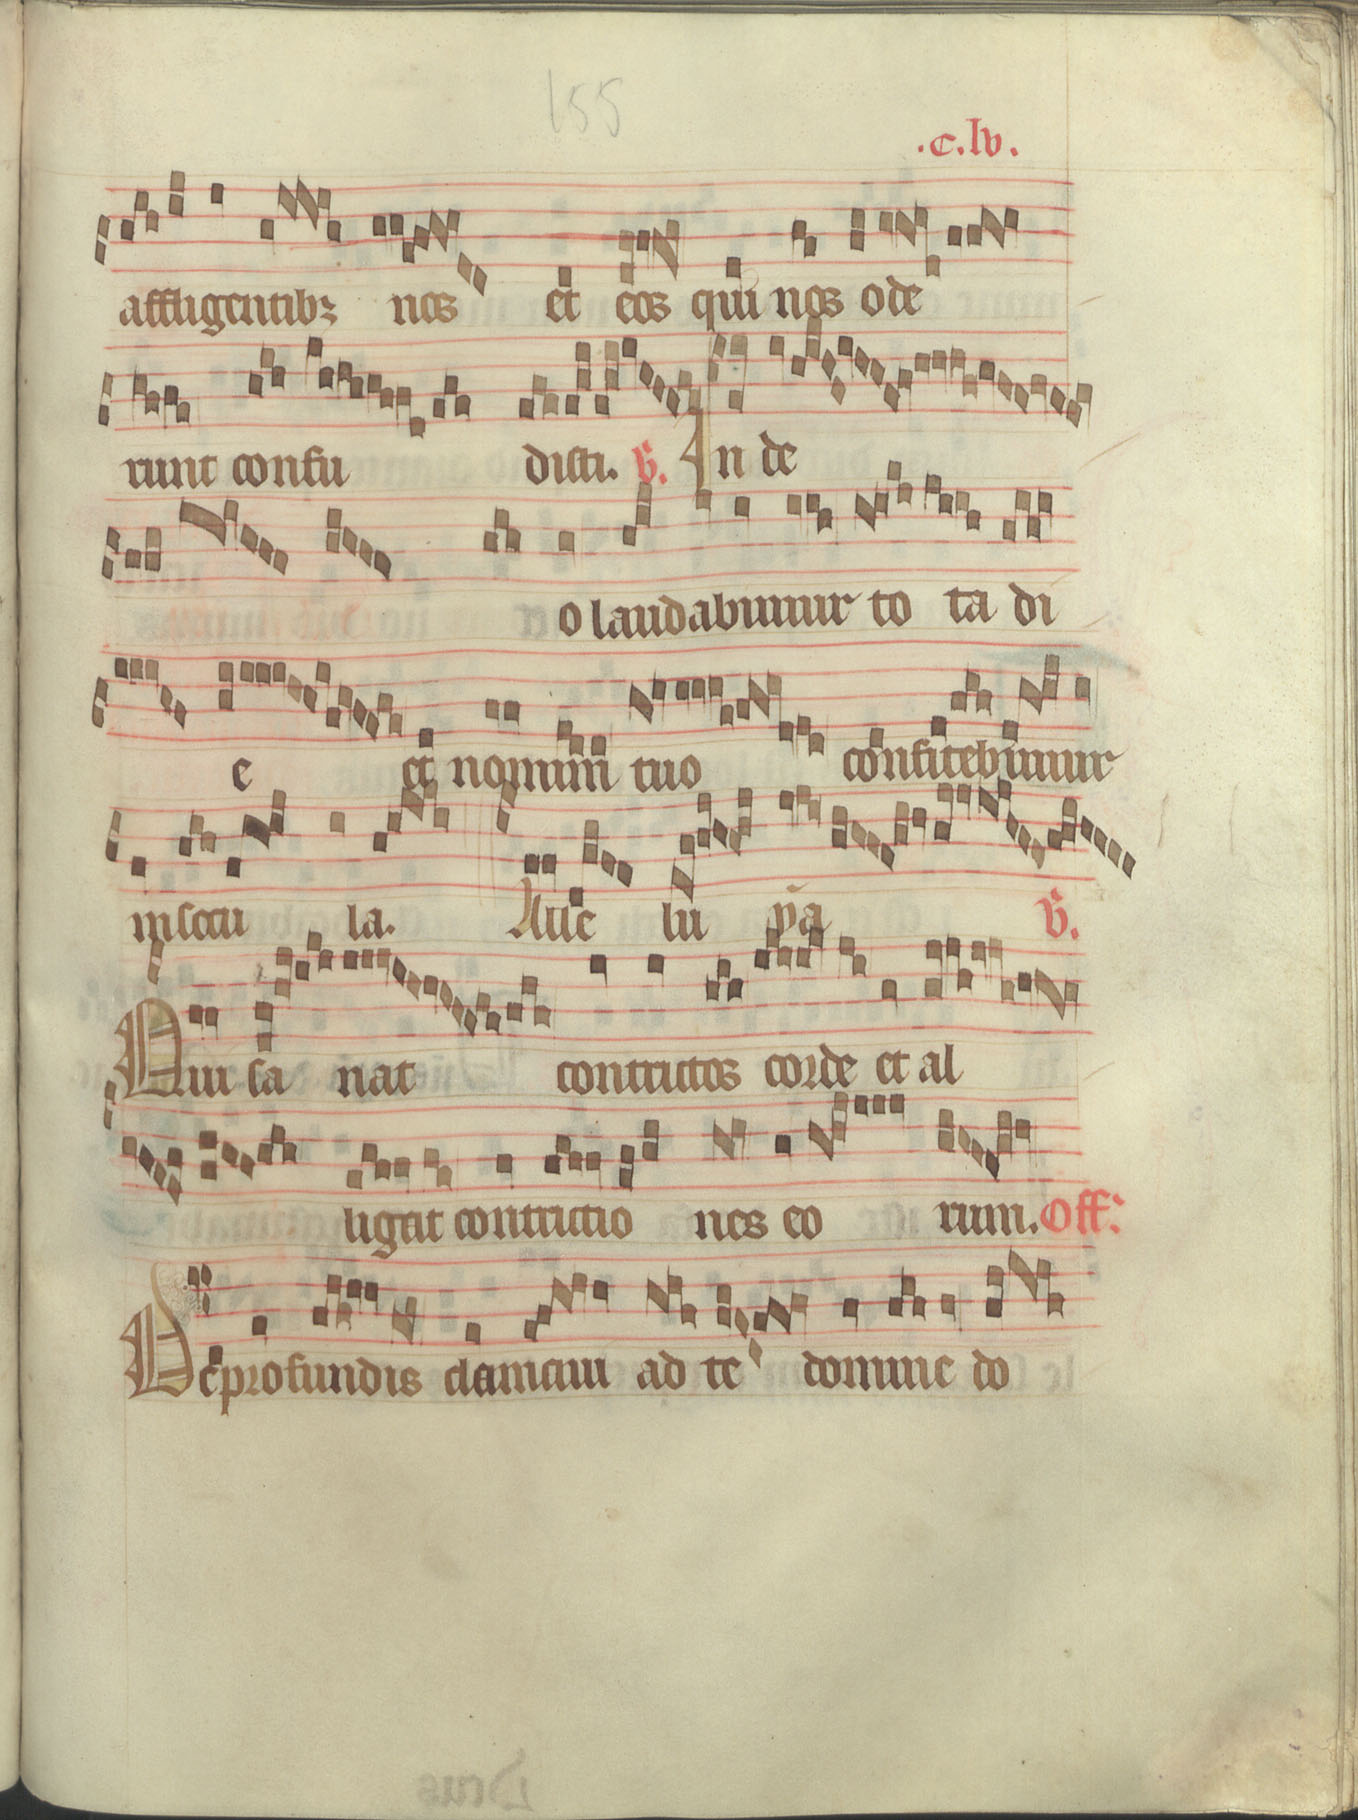 155
.c.lv.
affligentibꝫ nos et eos qui nos ode
runt confu disti. ℣. In de
o laudabimur to ta di
e et nomini tuo confitebimur
in secu la. Alle lu ya ℣.
Qui sa nat contritos corde et al
ligat contritio nes eo rum. Off.
De profundis clamaui ad te domine do